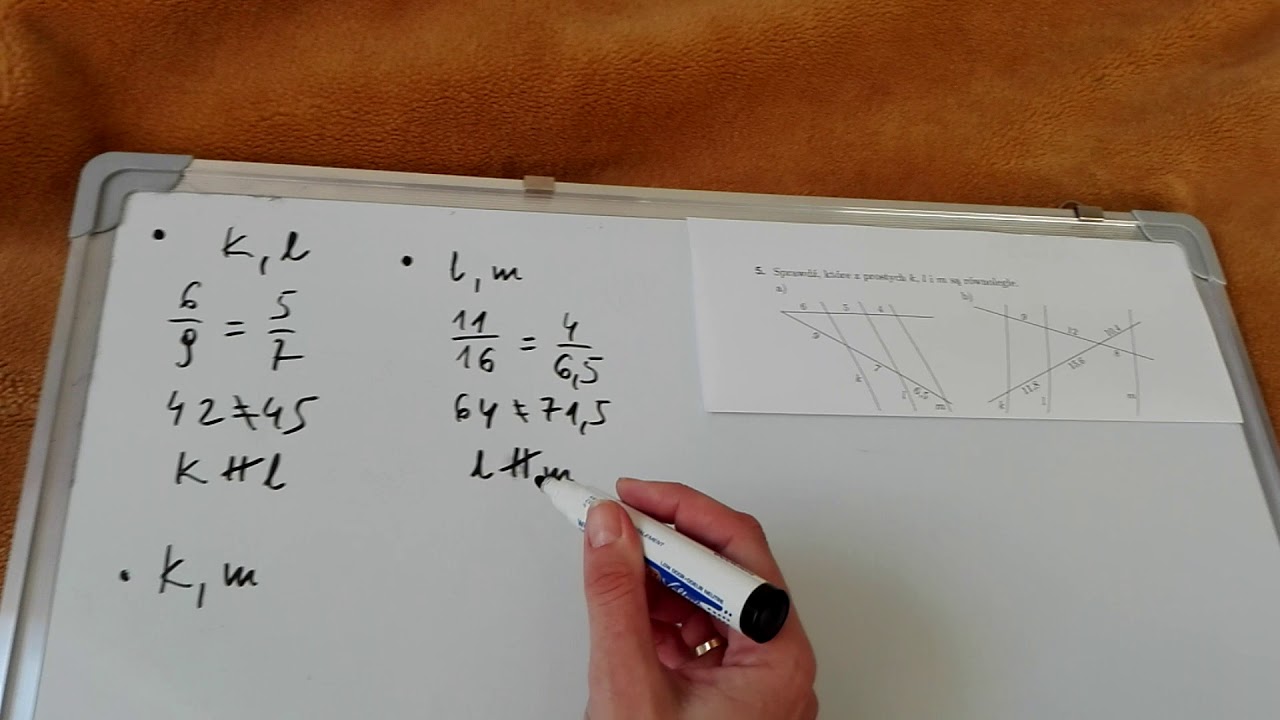 • k, l
6/9 = 5/7
42 ≠ 45
k ∦ l
• l, m
11/16 = 4/6,5
64 ≠ 71,5
l ∦ m
• k, m
5. Sprawdź, które z prostych k, l i m są równoległe.
a)
6 5 4
9
7
6,5
k l m
b)
9
12
10,4
8
15,6
11,8
k l m